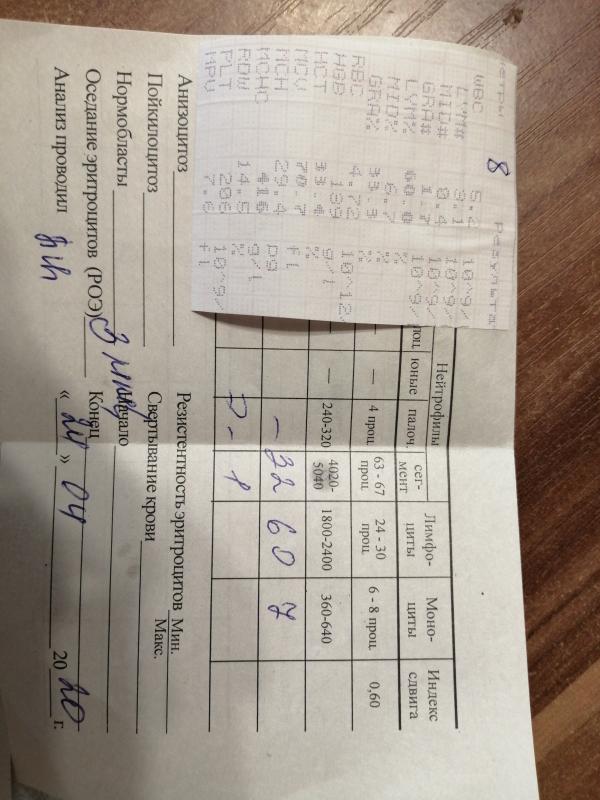 етры 8 Результа
WBC 5.2 10^9/
LYM# 3.1 10^9/
MID# 0.4 10^9/
GRA# 1.7 10^9/
LYM% 60.0 %
MID% 6.7 %
GRA% 33.3 %
RBC 4.72 10^12/
HGB 139 g/l
HCT 33.4 %
MCV 70.7 fl
MCH 29.4 pg
MCHC 416 g/l
RDW 14.5 %
PLT 206 10^9/
MPV 7.6 fl
Нейтрофилы Лимфо-циты Моно-циты Индекс сдвига
юные палоч. сег-мент
— 4 проц. 63 - 67 проц. 24 - 30 проц. 6 - 8 проц. 0,60
— 240-320 4020-5040 1800-2400 360-640
- 32 60 7
Анизоцитоз Резистентность эритроцитов Мин.
Пойкилоцитоз Макс.
Нормобласты Свертывание крови
Оседание эритроцитов (РОЭ) 3 мм/ч Начало
Конец
Анализ проводил « 24 » 04 2020 г.